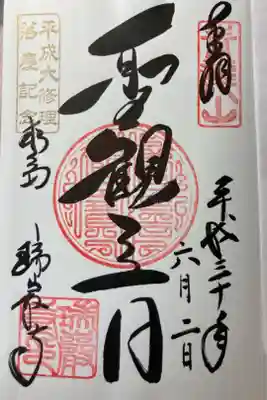 奉拝
平成三十年
六月二日
聖観音
平成大修理
落慶記念
松島
瑞巌寺